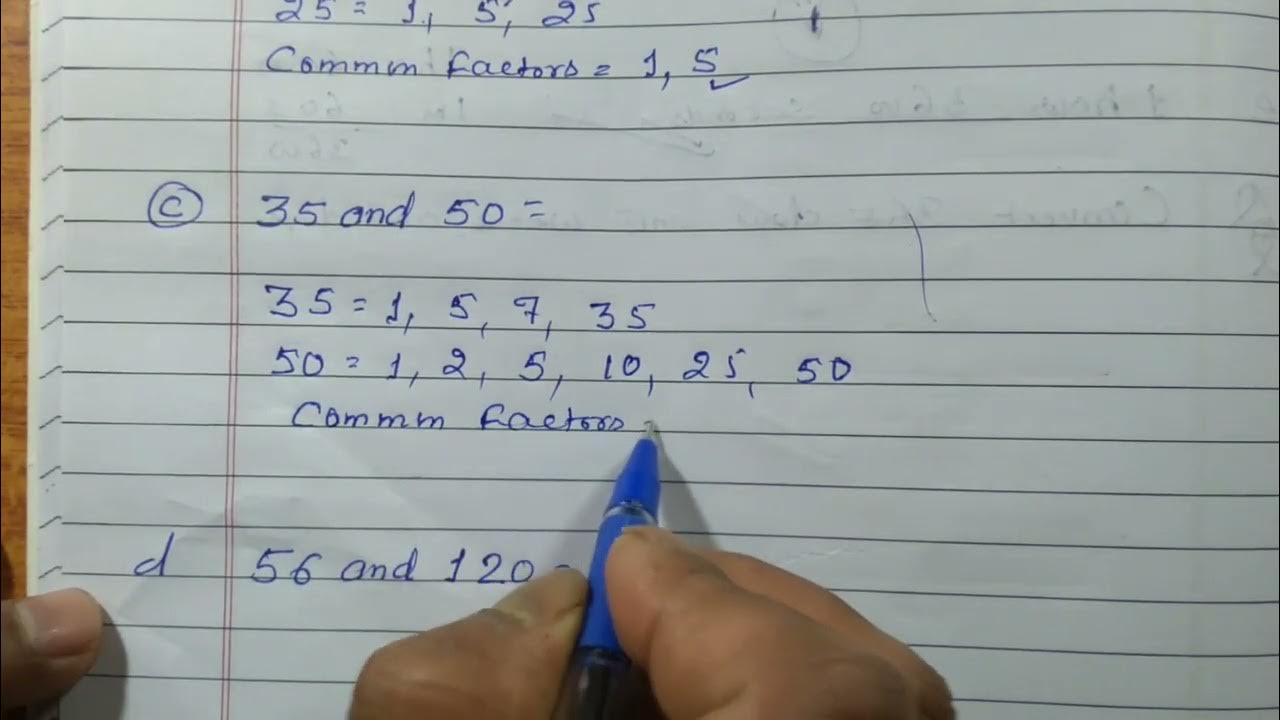 25 = 1, 5, 25
Commn factors = 1, 5
c 35 and 50 =
35 = 1, 5, 7, 35
50 = 1, 2, 5, 10, 25, 50
Commn factors
d 56 and 120 =